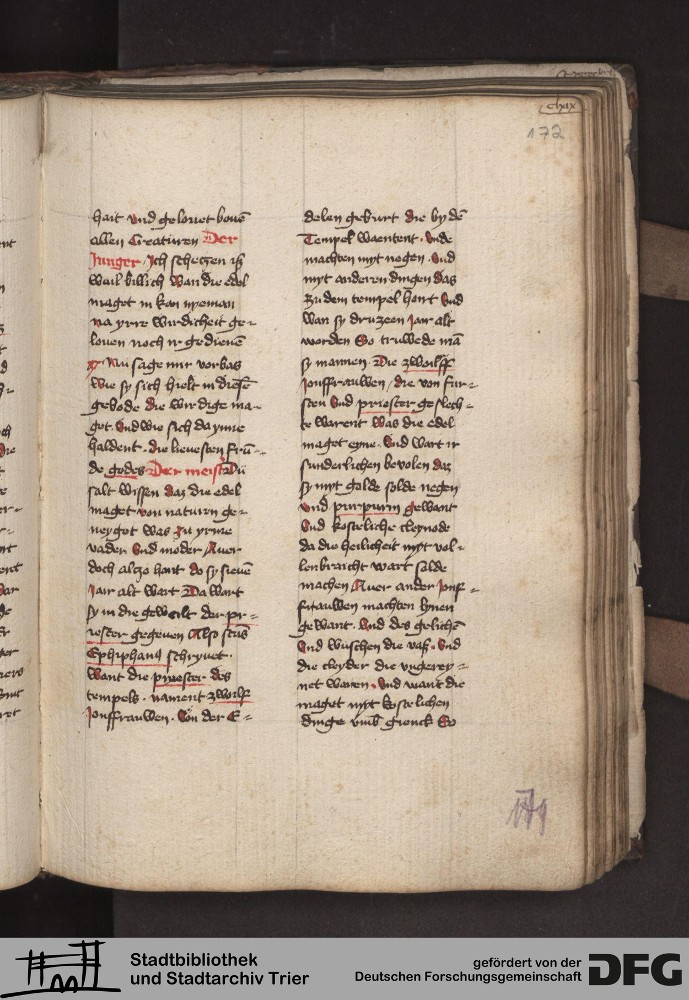 clxix
172
hait vnd gelouet bouē
allen Creaturen Der
Junger Ich schetzen iß
wail billich Wan die edel
maget in kan nyeman
na yrre wirdicheit ge-
louen noch ir gedienē
Nu sage mir vorbas
wie sy sich hielt in diesē
gebode die wirdige ma-
get Vnd wie sich da ynne
haldent die lieuesten frū-
de godes Der meist Du
salt wissen daz die edel
maget von naturen ge-
neyget was zu yrme
vader Vnd moder Auer
doch also hant do sy sieuē
Jair alt wart Da wart
sy in die gewalt der pr-
iester gegeuen Also sctus
Ephiphani schryuet
Want die priester des
tempels nament zwolff
Jonffrauwen Von der E-
delen geburt die by dē
Tempel waentent Vnde
machten myt negen Vnd
myt anderen dingen das
zu dem tempel hort Vnd
wan sy druzeen Jair alt
worden So truwede mā
sy mannen Die zwoilff
Jonffrauwen die von fur-
sten Vnd priester geslech-
te warent Was die edel
maget eyne Vnd wart ir
sunderlichen bevolen daz
sy myt golde solde negen
Vnd purpurin gewant
Vnd kosteliche cleynode
da die heilicheit myt vol-
lenbraicht wart solde
machen Auer ander Jonf-
frauwen machten lynen
gewant Vnd des gelichē
Vnd wuschen die vaß Vnd
die cleyder die vngerey-
net waren Vnd want die
maget myt kostelichen
dinge vmb gienck So
Stadtbibliothek
und Stadtarchiv Trier
gefördert von der
Deutschen Forschungsgemeinschaft
DFG